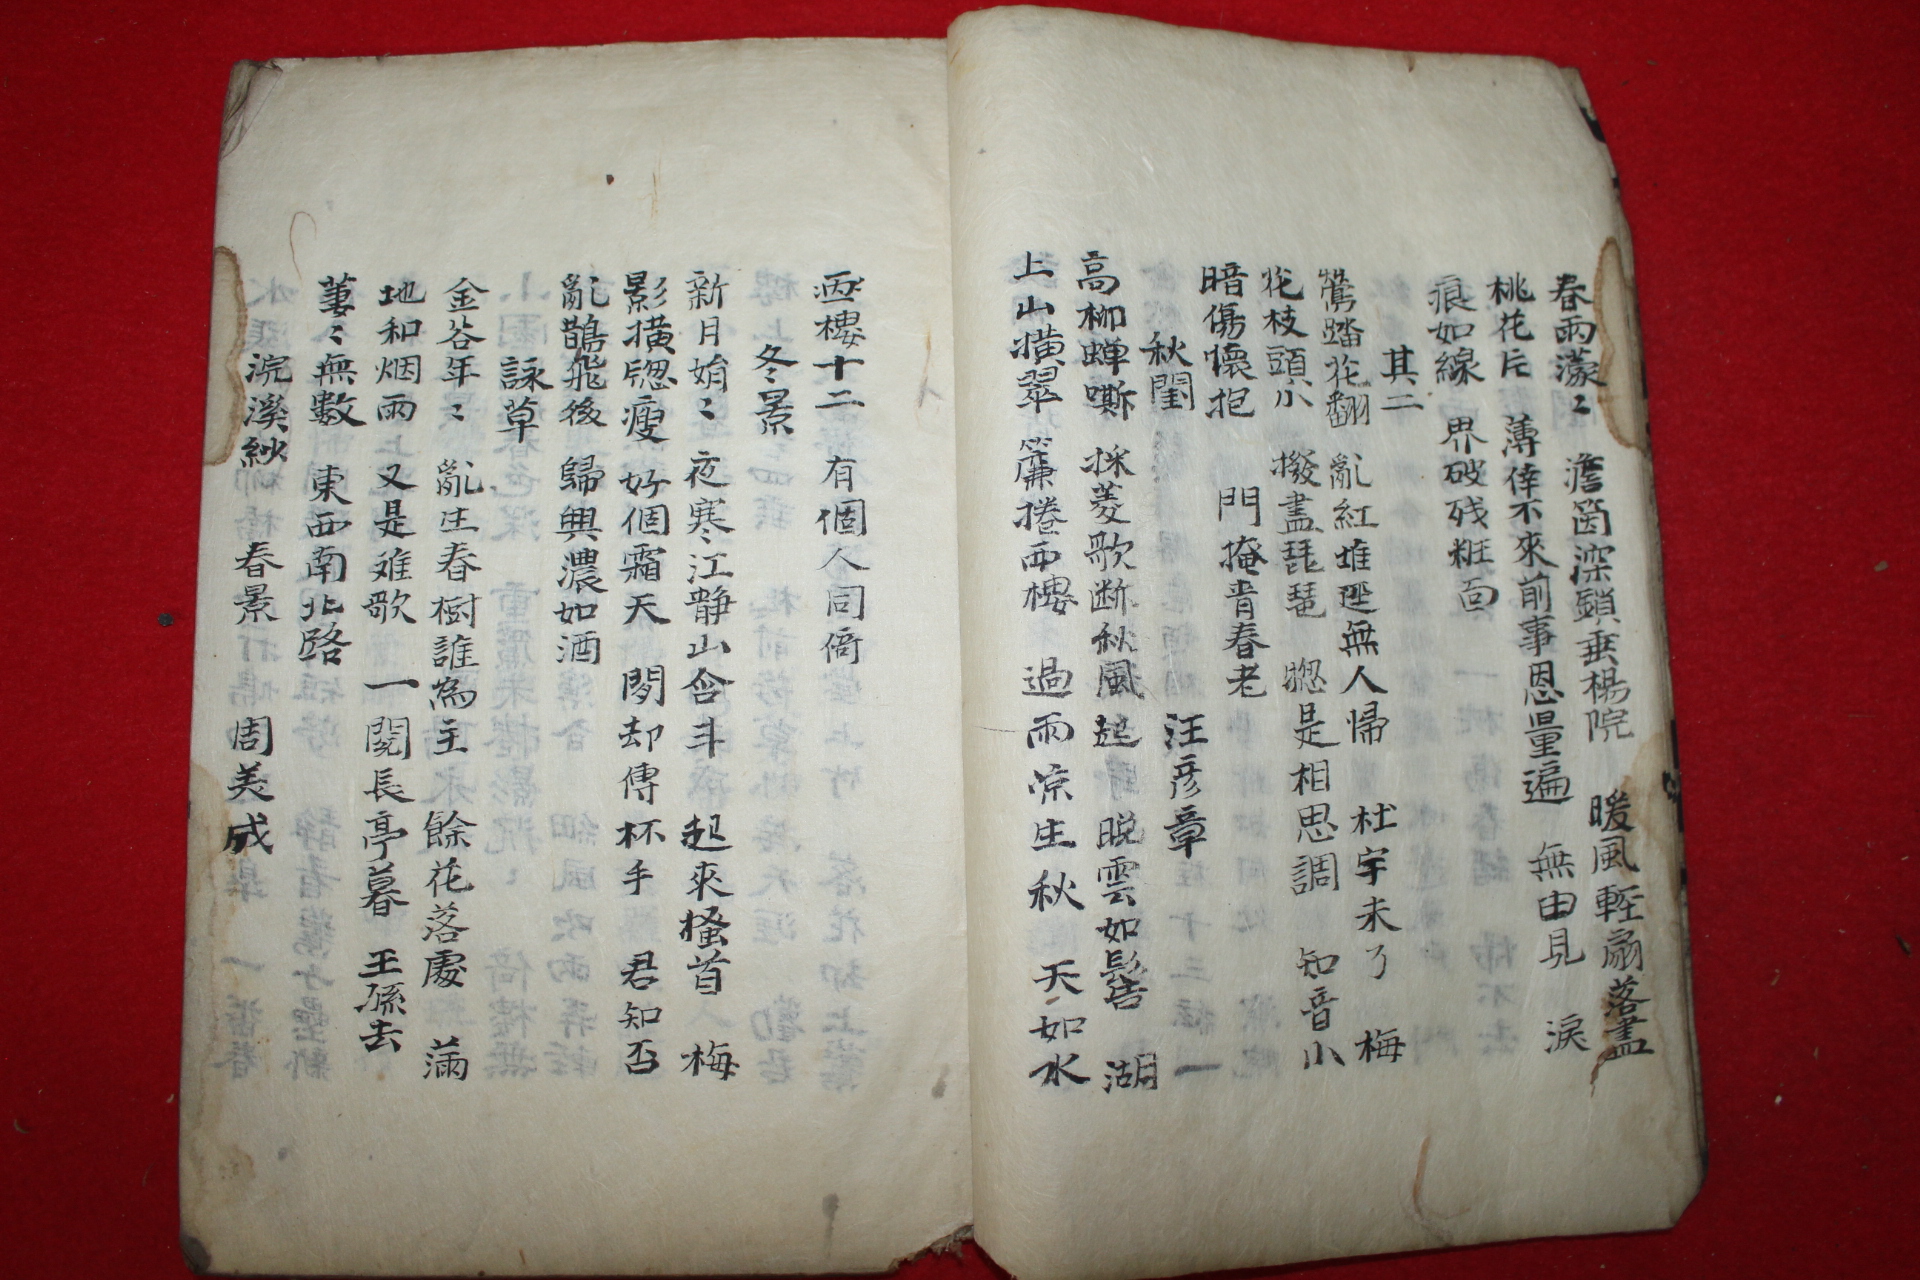 春雨濛〻　澹匳深鎖垂楊院　暖風輕扇落盡
桃花片　薄倖不來前事思量遍　無由見　淚
痕如線　界破残粧面
其二
鶯踏花翻　亂紅堆逕無人帰　杜宇未了　梅
花枝頭小　撥盡琵琶　惣是相思調　知音小
暗傷懷抱　門掩青春老
秋閨　汪彦章
高柳蟬嘶　採菱歌断秋風起　晩雲如髻　湖
上山橫翠　簾捲西樓　過雨凉生秋　天如水
西樓十二　有個人同倚
冬景
新月娟〻　夜寒江静山含斗　起來搔首　梅
影橫牕瘦　好個霜天　閑却傳杯手　君知否
亂鵲飛後　歸興濃如酒
詠草
金谷年〻　亂生春樹誰為主　餘花落處　滿
地和烟雨　又是难歌　一闋長亭暮　王孫去
萋〻無數　東西南北路
浣溪紗　春景　周美成